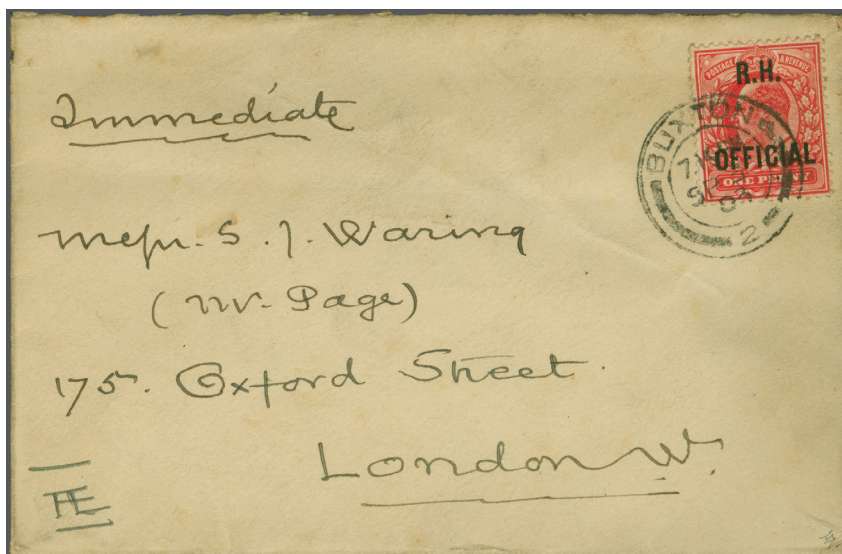 Immediate
POSTAGE & REVENUE
R.H.
OFFICIAL
ONE PENNY
BUXTON
2
Messrs. S. J. Waring
(Mr. Page)
175. Oxford Street.
London W.